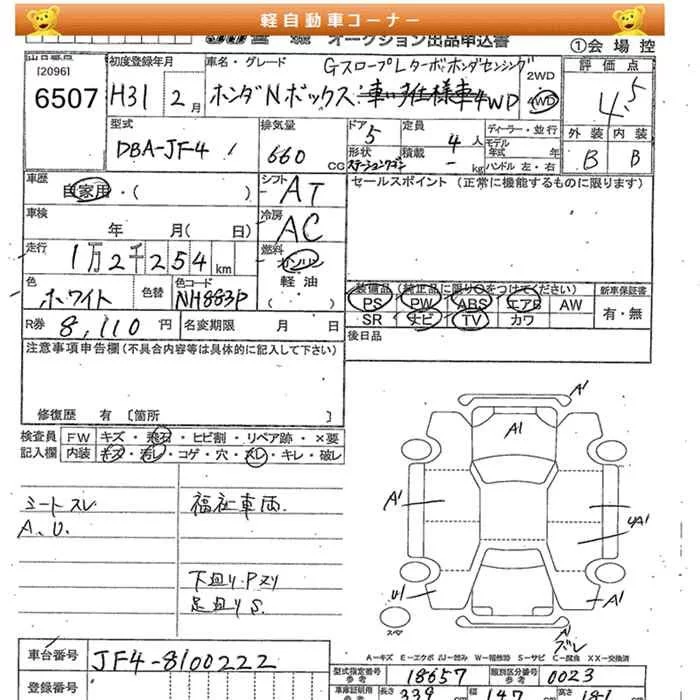 軽自動車コーナー
オークション出品申込書
①会場控
出品番号
[2096]
6507
初度登録年月
H31 2月
車名・グレード
GスロープLターボホンダセンシング
ホンダNボックス
車いす仕様車4WD
2WD
4WD
評価点
4.5
外装 内装
B B
型式
DBA-JF4
排気量
660
CC
ドア
5
形状
ステーションワゴン
定員
4人
積載
- kg
ディーラー・並行
モデル
年式 年
ハンドル 左・右
車歴
自家用・( )
シフト
AT
セールスポイント (正常に機能するものに限ります)
車検
年 月( 日)
冷房
AC
走行
1万2千254km
燃料
ガソリン
軽油
( )
色
ホワイト
色替
色コード
NH883P
装備品(純正品に限り○をつけてください)
新車保証書
PS PW ABS エアB AW
有・無
SR ナビ TV カワ
R券 8,110円
名変期限 月 日
後日品
注意事項申告欄(不具合内容等は具体的に記入して下さい)
修復歴 有 [箇所 ]
検査員
記入欄
FW キズ・飛石・ヒビ割・リペア跡・×要
内装 キズ・汚レ・コゲ・穴・スレ・キレ・破レ
シートスレ
A、U.
福祉車両
下廻り・Pヌリ
足廻りS.
A1
A1
A1
4A1
U1
A1
A1
ズレ
スペア
A-キズ E-エクボ U-凹み W-補修跡 S-サビ C-腐食 XX-交換済
車台番号
JF4-8100222
登録番号
型式指定番号
参考
18657
類別区分番号
参考
0023
車庫証明用
参考
長さ
339
幅
147
高さ
181